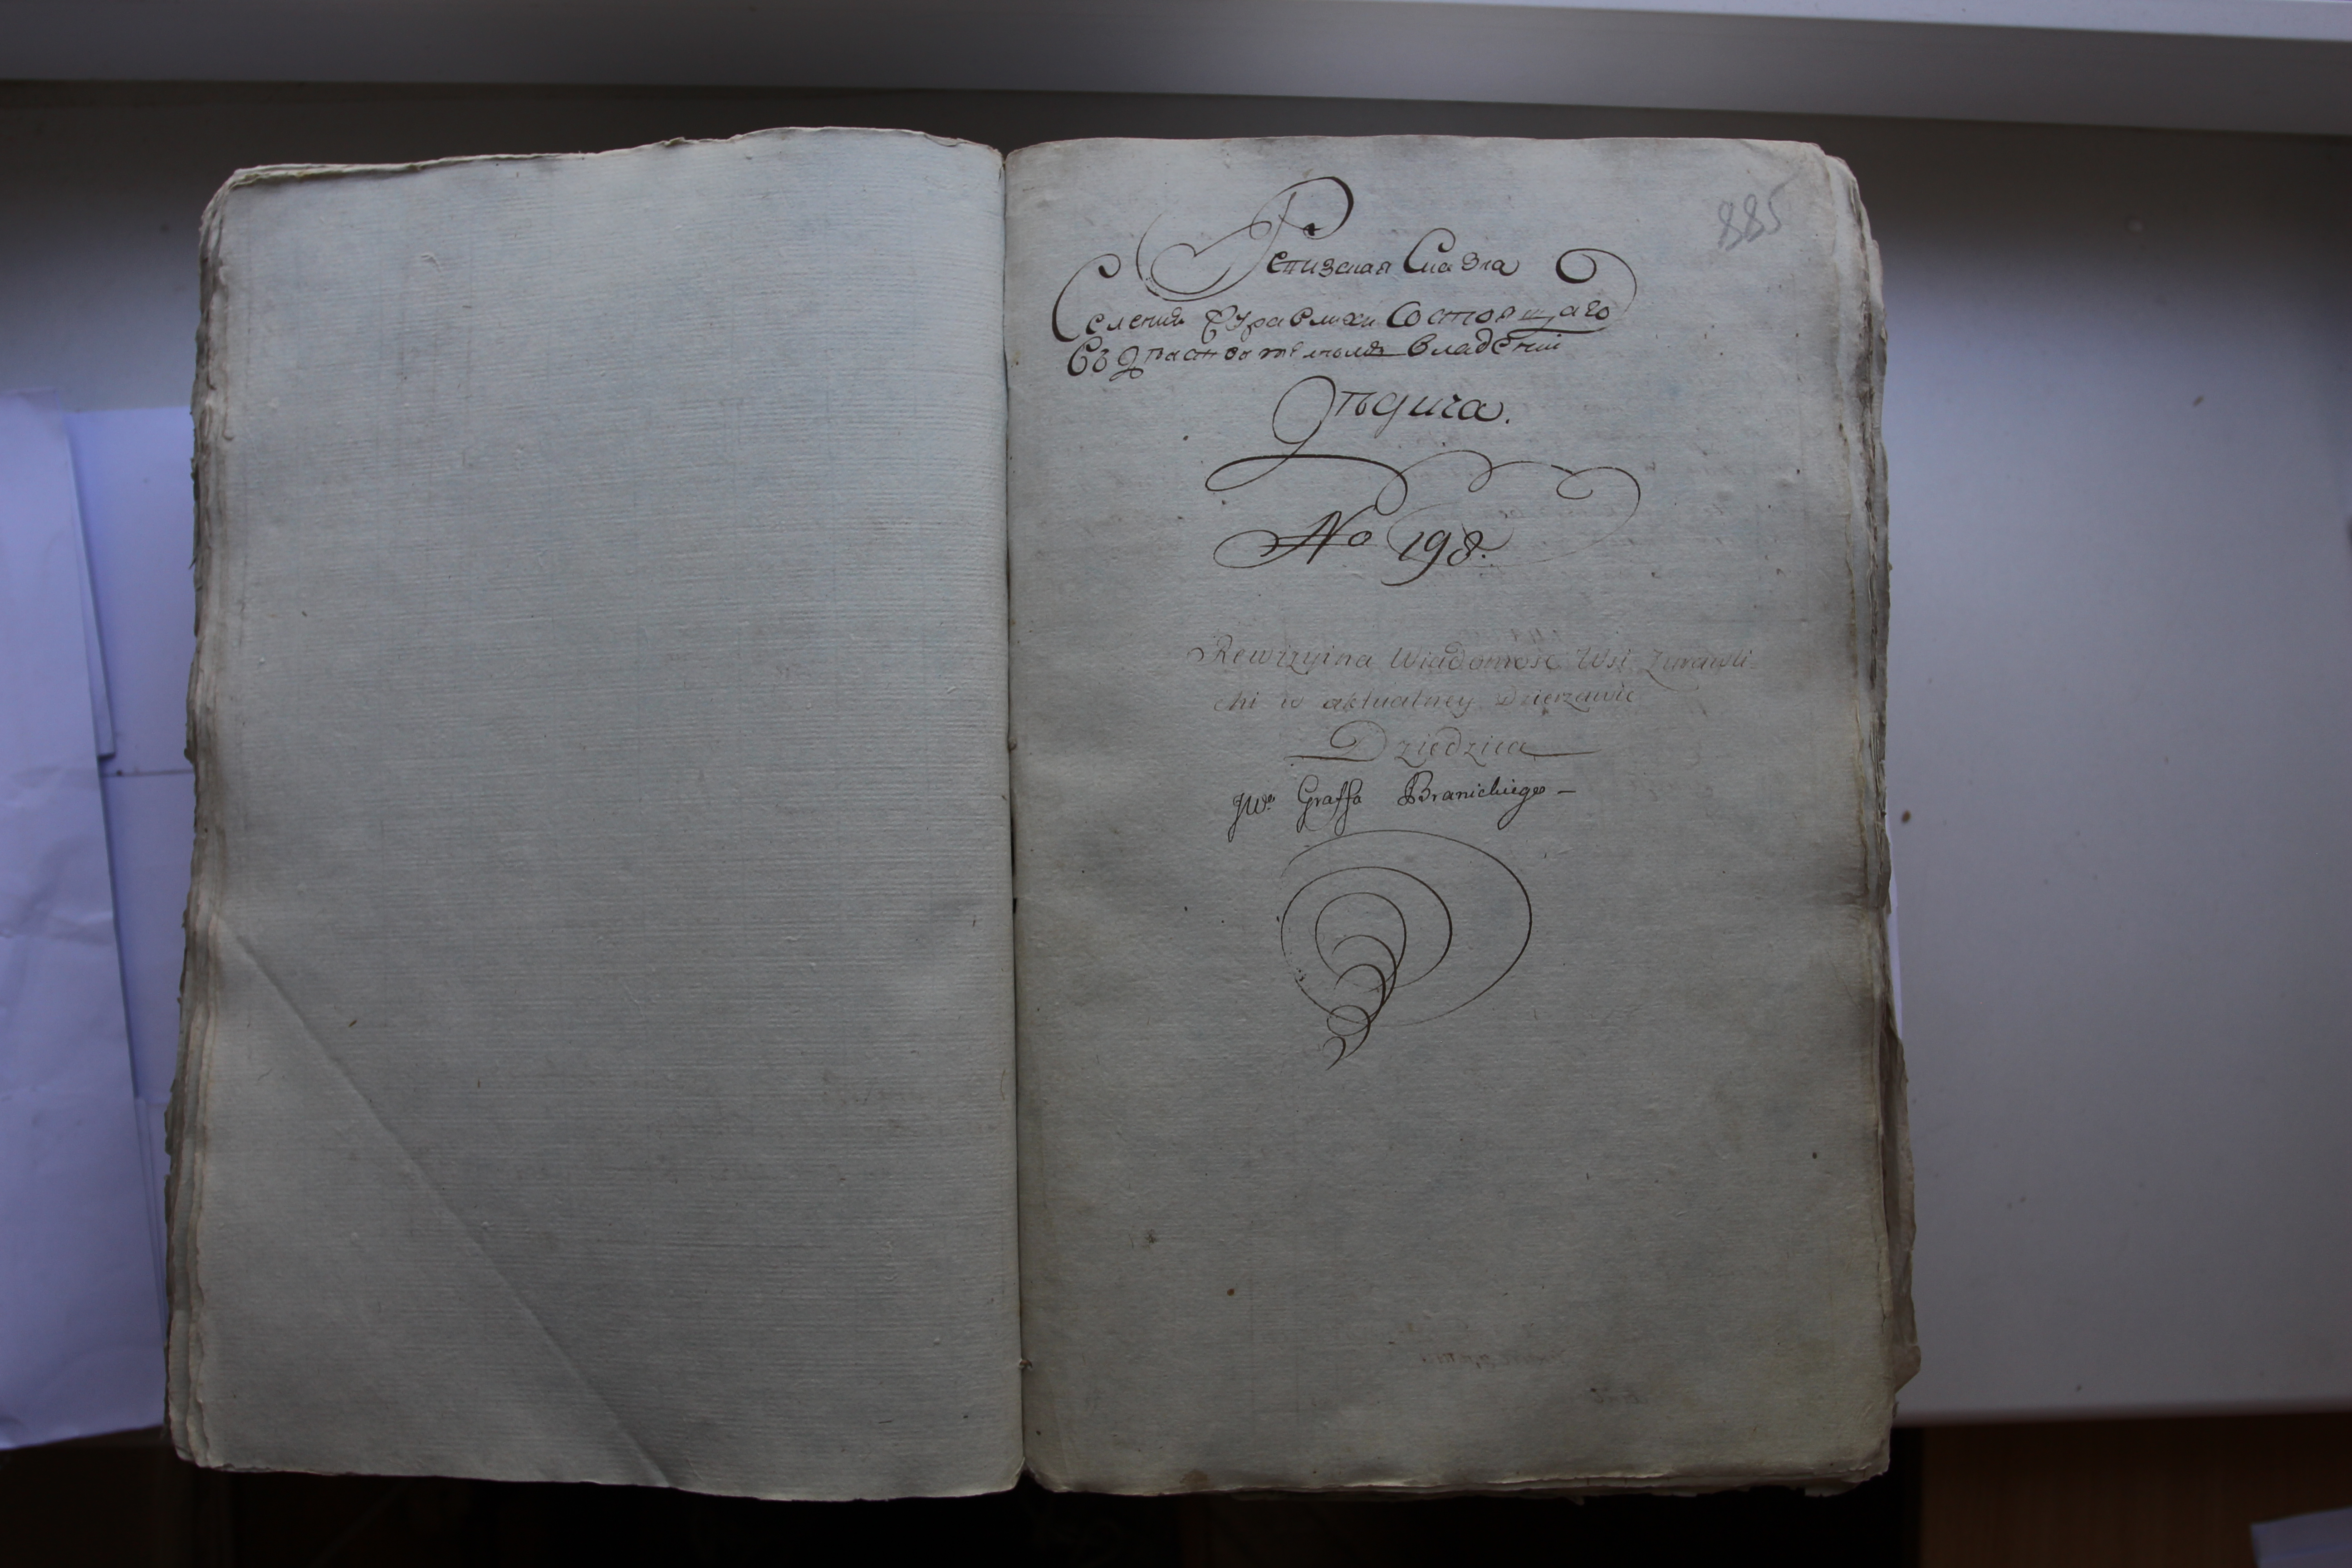 885
Ревизская Сказка
Селения Журавлихи Состоящаго
Въ Дѣйствительном владении
Дѣдича.
No 198.
Rewizyina Wiadomość Wsi Zurawli-
chi w aktualney Dzierzawie
Dziedzica
JWo Graffa Branickiego –